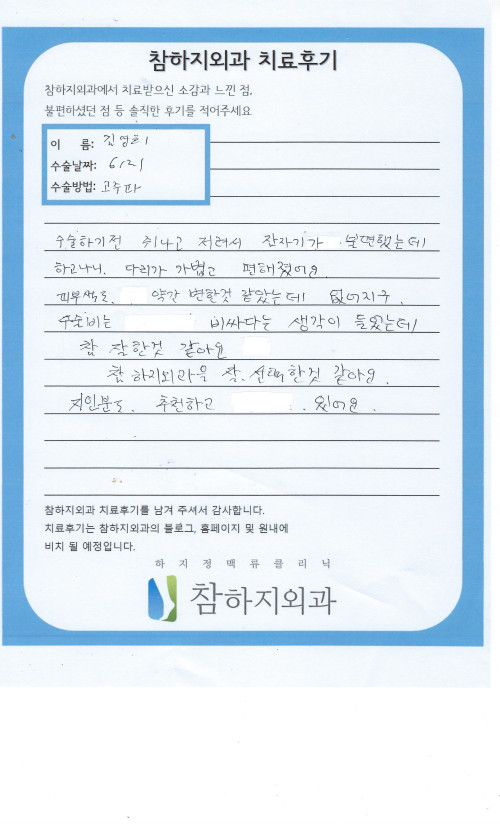 참하지외과 치료후기
참하지외과에서 치료받으신 소감과 느낀 점,
불편하셨던 점 등 솔직한 후기를 적어주세요
이 름: 김영
수술날짜: 6/21
수술방법: 고주파
수술하기전 쥐나고 저려서 잠자기가 불편했는데
하고나니. 다리가 가볍고 편해졌어요.
피부색도. 약간 변할것 같았는데 없어지구.
수술비는 비싸다는 생각이 들었는데
참 잘한것 같아요
참하지외과을 참. 선택한것 같아요.
지인분도. 추천하고 . 있어요.
참하지외과 치료후기를 남겨 주셔서 감사합니다.
치료후기는 참하지외과의 블로그, 홈페이지 및 원내에
비치 될 예정입니다.
하지정맥류클리닉
참하지외과